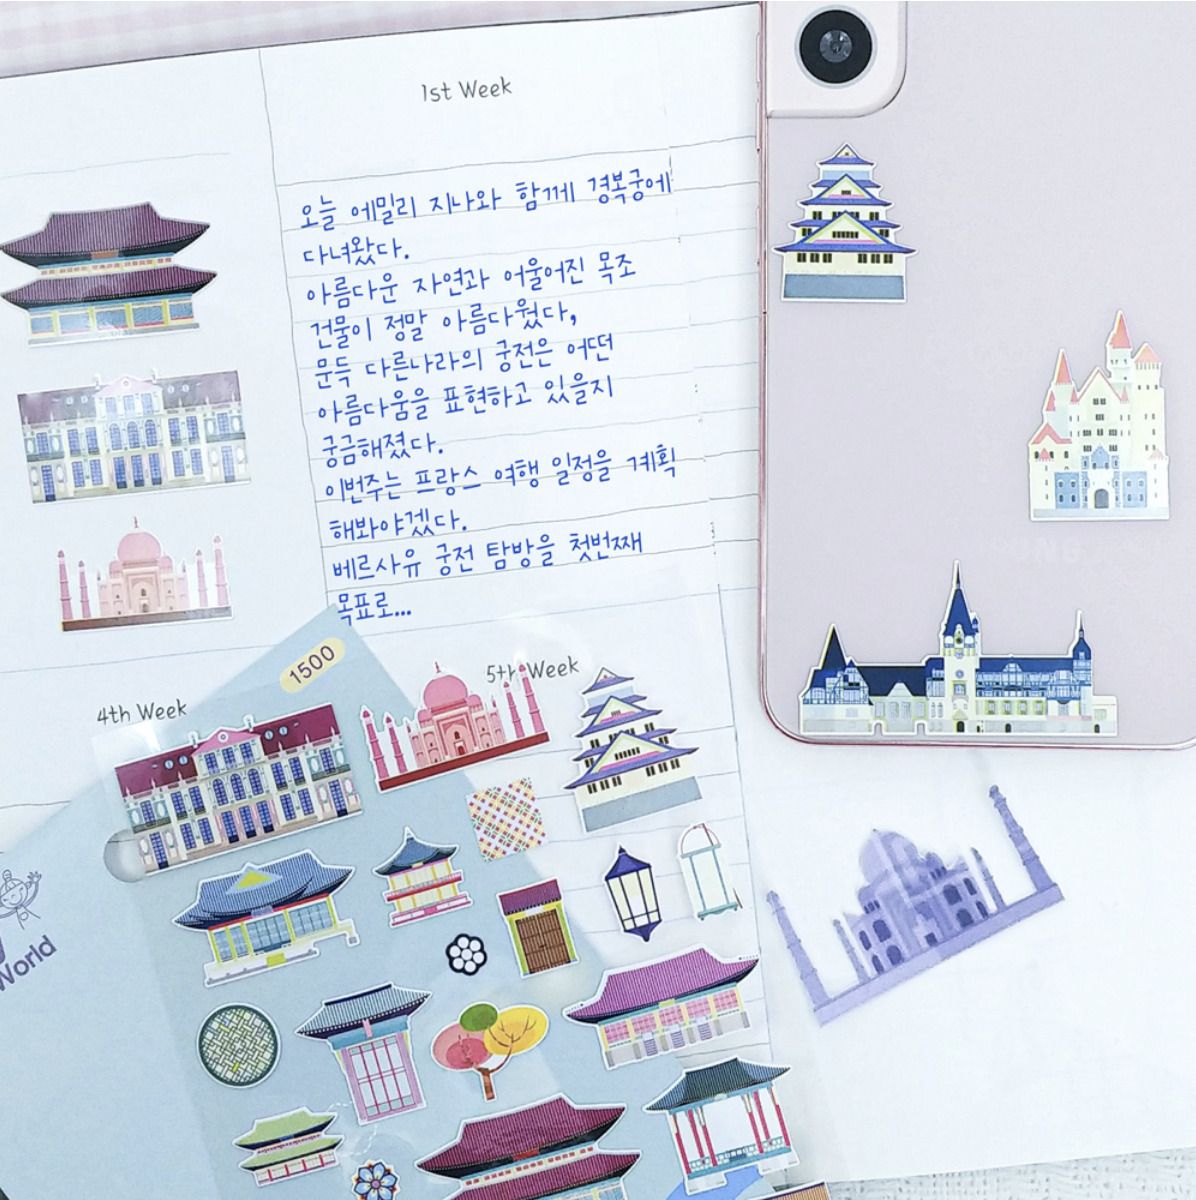 1st Week
오늘 에밀리 지나와 함께 경복궁에
다녀왔다.
아름다운 자연과 어울어진 목조
건물이 정말 아름다웠다,
문득 다른나라의 궁전은 어떤
아름다움을 표현하고 있을지
궁금해졌다.
이번주는 프랑스 여행 일정을 계획
해봐야겠다.
베르사유 궁전 탐방을 첫번째
목표로...
4th Week
5th Week
1500
World